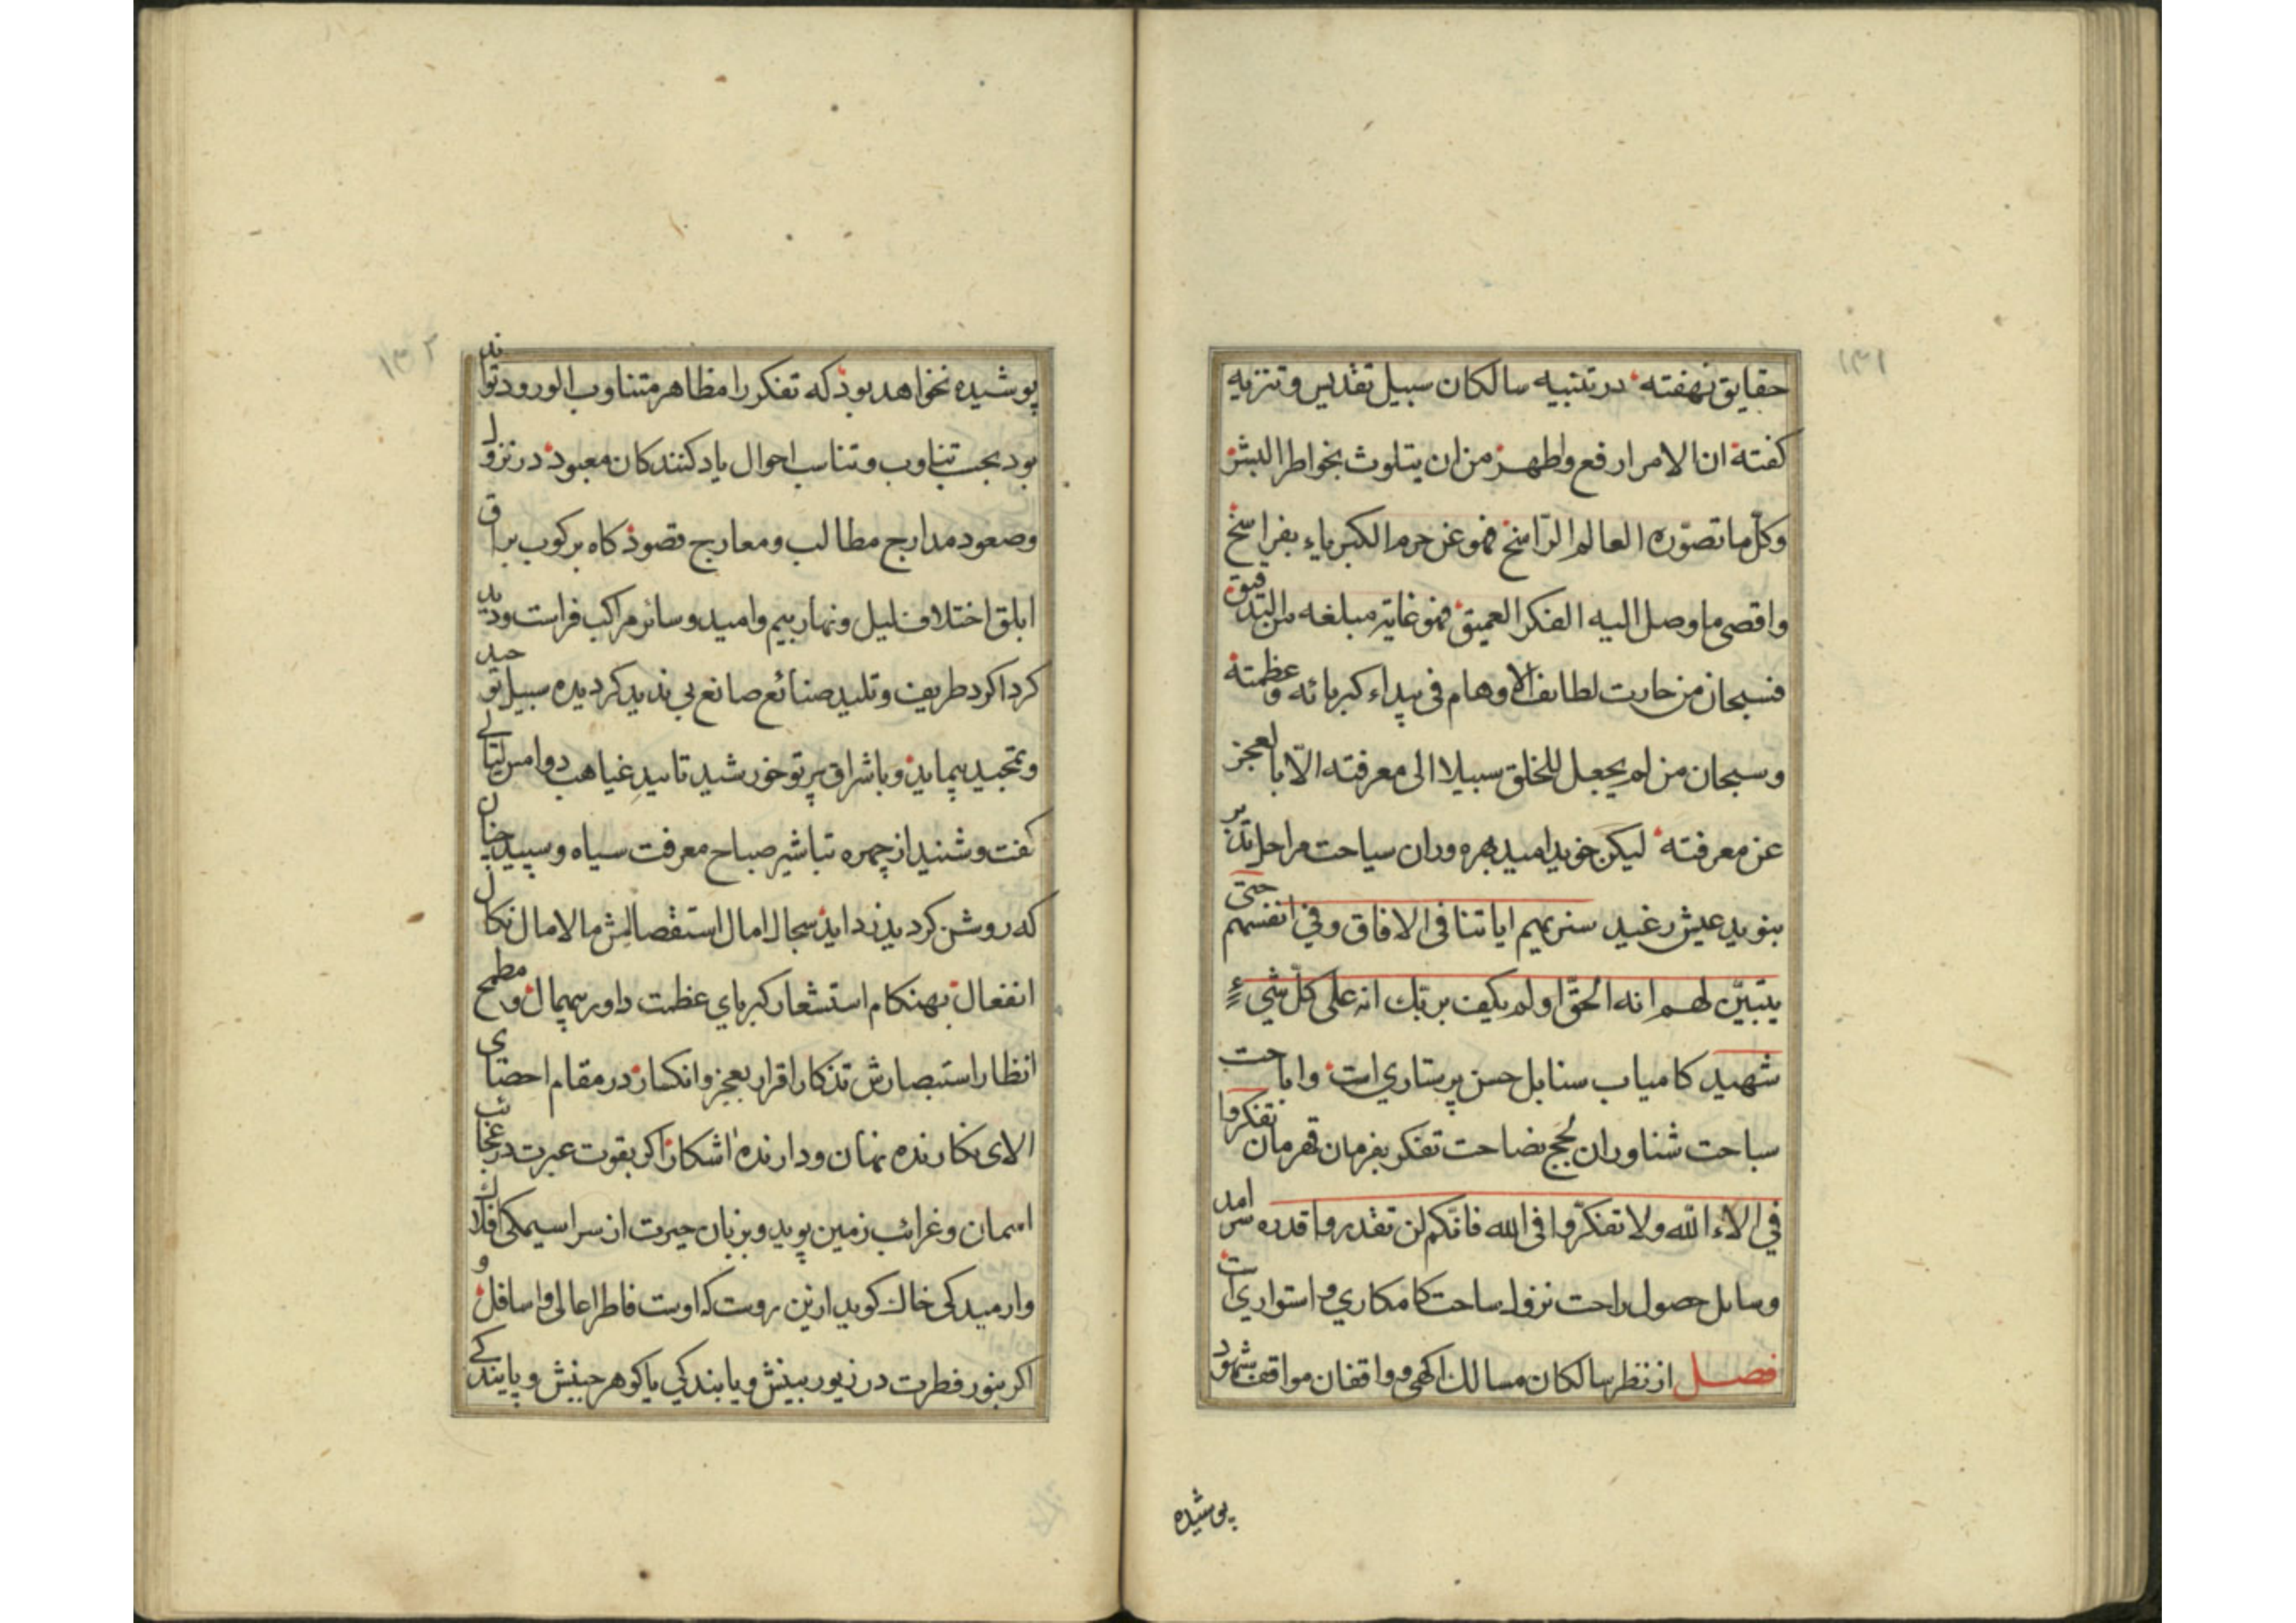 ١٣١
حقایق نهفته در تنبیه سالکان سبیل تقدیس و تنزیه
کفته ان الامر ارفع واطهر من ان یتلوث بخواطر البشر
وکلّ ما تصوّره العالم الرّاسخ فهو عن حرم الکبریاء بفراسخ
واقصی ما وصل الیه الفکر العمیق فهو غایة مبلغه من التدقیق
فسبحان من حارت لطایف الاوهام فی بیداء کبریائه وعظمته
وسبحان من لم یجعل للخلق سبیلا الی معرفته الّا بالعجز
عن معرفته لیکن خوید امید بهره وران سیاحت مراحل تدبر
بنوید عیش رغید سنریهم ایاتنا فی الافاق وفی انفسهم حتی
یتبیّن لهم انه الحقّ اولم یکف بربّك انه علی کلّ شيءٍ
شهید کامیاب سنابل حسن پرستاری است واباحت
سباحت شناوران لجج تفکر بفرمان قهرمان تفکروا
فی الاء اللّه ولا تفکّروا فی الله فانّکم لن تقدروا قدره سرامد
وسایل حصول راحت نزول ساحت کامکاری و استواری است
فصل از نظر سالکان مسالك اکهی و واقفان مواقف شهود
پوشیده
١٣٢
پوشیده نخواهد بود که تفکر را مظاهر متناوب الورود تواند
بود بحسب تناوب و تناسب احوال یاد کنندکان معبود در نزول
وصعود مدارج مطالب ومعارج قصود کاه برکوب براق
ابلق اختلاف لیل ونهار بیم وامید وسائر مراکب فراست ودید
کرداکرد طریف وتلید صنائع صانع بی ندید کردیده سبیل توحید
وتمجید پیماید و باشراق پرتو خورشید تایید غیاهب دوامس لیالی
کفت وشنید از چهره تباشیر صباح معرفت سیاه وسپید چنان
که روشن کردید زداید سجال امال استقصالش مالامال نکال
انفعال بهنکام استشعار کبریای عظمت داور بیهمال و مطمح
انظار استبصارش تذکار اقرار بعجز وانکسار در مقام احصای
الای نکارنده نهان ودارنده اشکار اکر بقوت عبرت در عجائب
اسمان وغرائب زمین پوید وبزبان حیرت از سراسیمکی افلاك
وارمیدکی خاك کوید ازین روست که اوست فاطر اعالی واسافل و
اکر بنور فطرت در زیور بینش ویابندکی یا کوهر جنبش و پایندکی